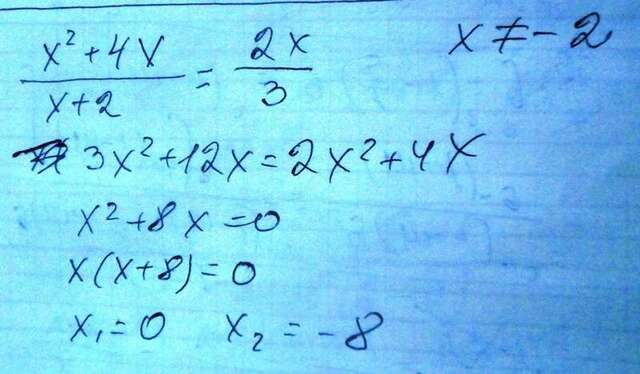 (x²+4x)/(x+2) = 2x/3    x ≠ -2
3x²+12x=2x²+4x
x²+8x=0
x(x+8)=0
x₁=0  x₂=-8